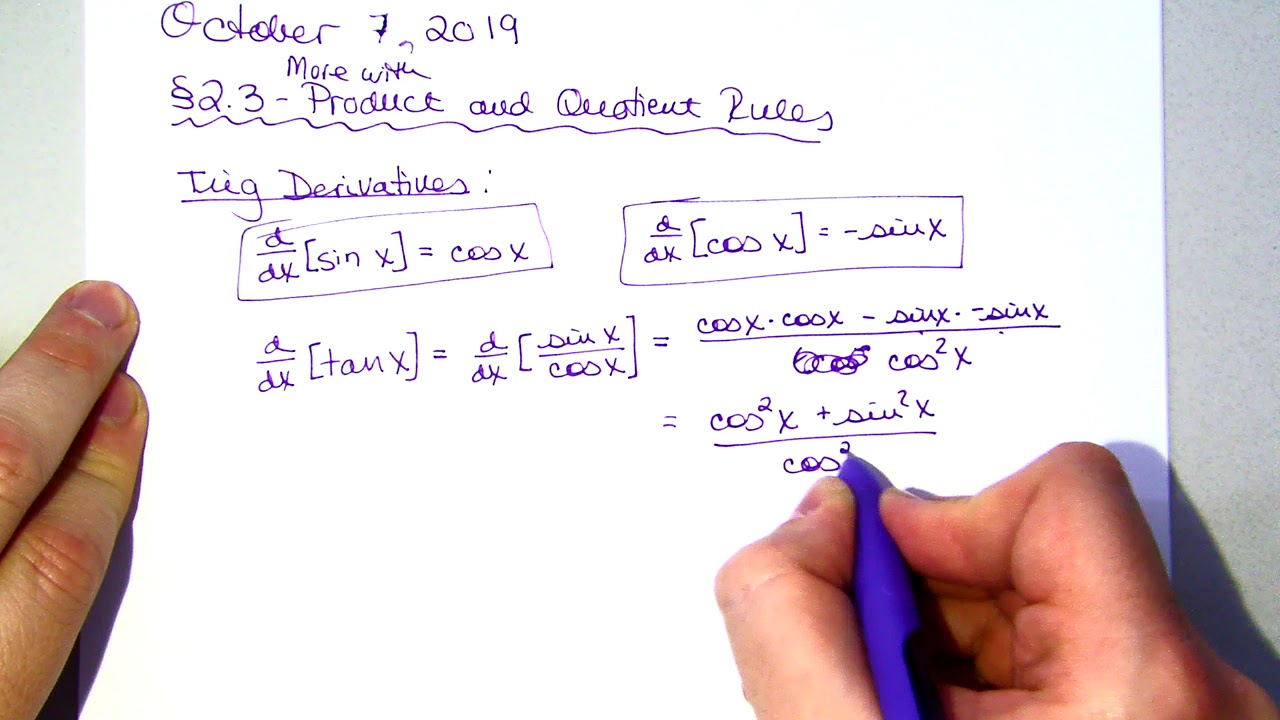 October 7, 2019
More with
§2.3 - Product and Quotient Rules
Trig Derivatives:
d/dx [sin x] = cos x
d/dx [cos x] = -sin x
d/dx [tan x] = d/dx [sin x / cos x] = cos x · cos x - sin x · -sin x / cos²x
= cos²x + sin²x / cos²